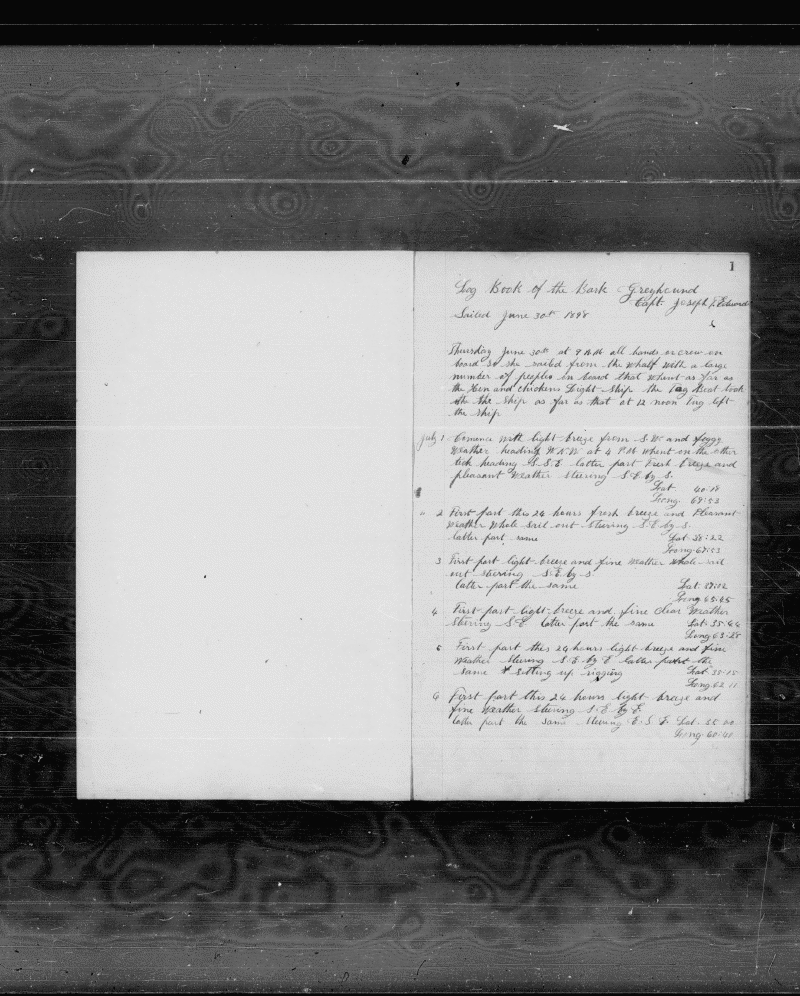 1
Log Book of the Bark Greyhound
Capt. Joseph F. Edwards
Sailed June 30th 1898
Thursday June 30th at 9 A.M all hands or crew on
board so she sailed from the whalf with a large
number of peoples on board that whent as far as
the Hen and chickens Light Ship the Tug that took
the Ship as far as that at 12 noon Tug left
the ship
July 1 Comence with light breeze from S.W. and foggy
Weather heading W.N.W at 4 P.M whent on the other
tack heading S.S.E. latter part Fresh breeze and
pleasant Weather Steering S.E. by S.
Lat. 40-18
Long. 69-53
" 2 First part this 24 hours fresh breeze and Pleasant
Weather Whole sail out Steering S.E. by S.
latter part same Lat. 38:22
Long 67:53
3 First part light breeze and fine Weather Whole sail
out Steering S.E. by S.
latter part the same Lat.
Long
4 First part light breeze and fine clear Weather
Steering S.E. latter part the same Lat. 35:44
Long 63-28
5 First part this 24 hours light breeze and fine
Weather Steering S.E. by E latter part the
same & setting up rigging Lat 35-15
Long 62 11
6 First part this 24 hours light breeze and
fine Weather Steering S.E. by E.
latter part the same Steering E.S.E. Lat. 35 00
Long 60:40